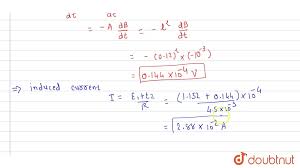 dt dt
= - A dB/dt = - l² dB/dt
= - (0.12)² × (-10⁻³)
= 0.144 × 10⁻⁴ V
⇒ induced current I = E₁+E₂/R = (1.152 + 0.144) × 10⁻⁴/4.5 × 10⁻³
= 2.88 × 10⁻² A
doubtnut